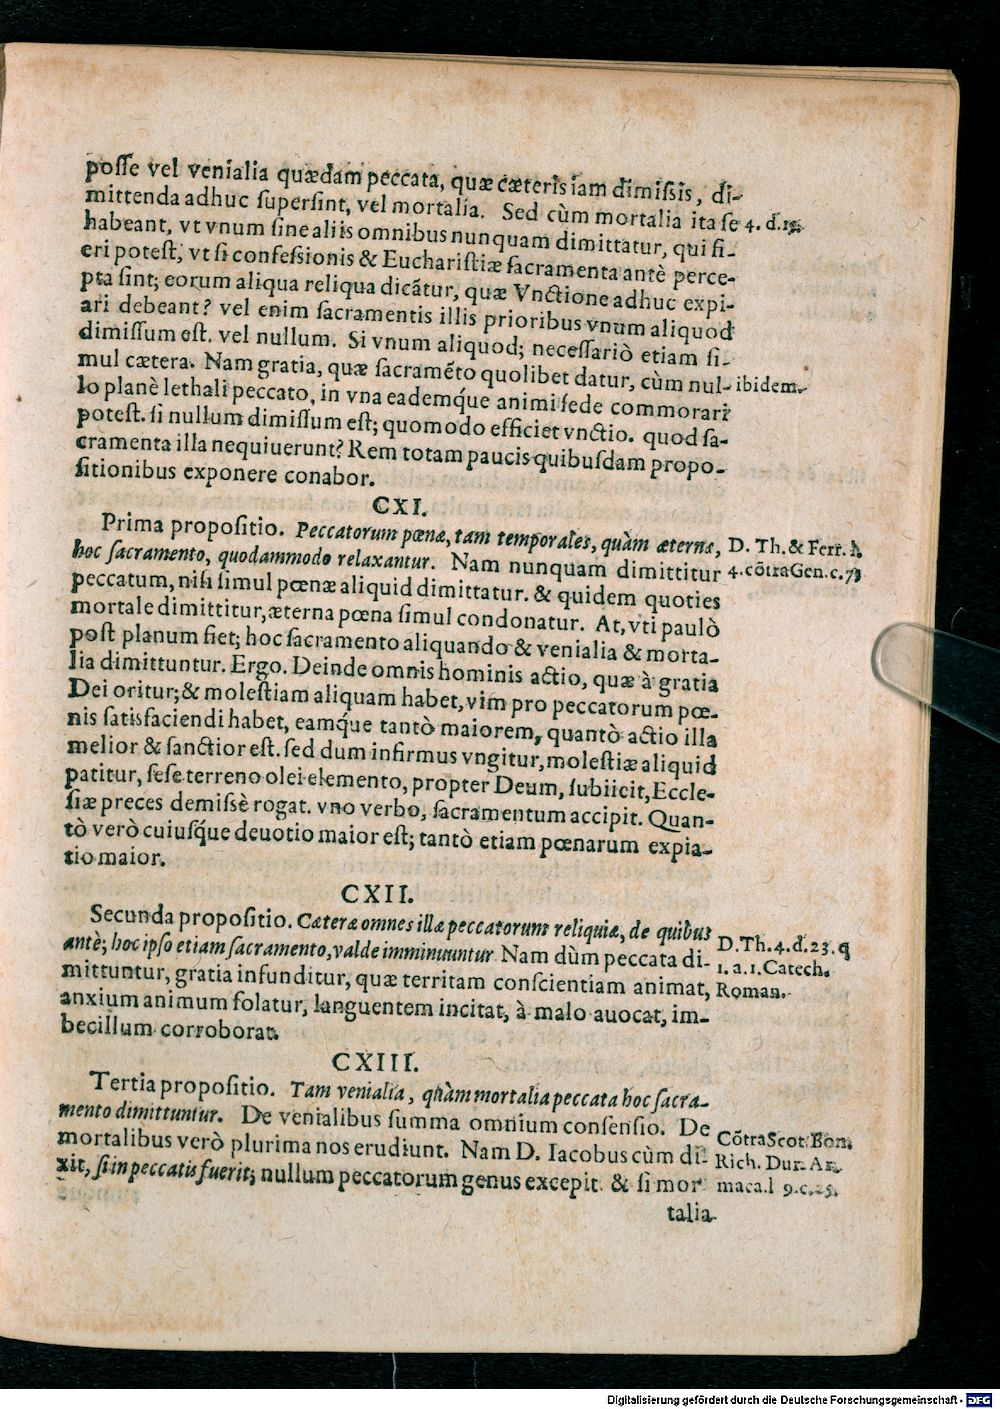 posse vel venialia quædam peccata, quæ cæteris iam dimissis, di-
mittenda adhuc supersint, vel mortalia. Sed cùm mortalia ita se
4. d.
habeant, vt vnum sine aliis omnibus nunquam dimittatur, qui fi-
eri potest, vt si confessionis & Eucharistiæ sacramenta antè perce-
pta sint; eorum aliqua reliqua dicātur, quæ Vnctione adhuc expi-
ari debeant? vel enim sacramentis illis prioribus vnum aliquod
dimissum est, vel nullum. Si vnum aliquod; necessariò etiam si-
mul cætera. Nam gratia, quæ sacramēto quolibet datur, cùm nul-
ibidem.
lo planè lethali peccato, in vna eademq́ue animi sede commorari
potest. si nullum dimissum est; quomodo efficiet vnctio. quod sa-
cramenta illa nequiuerunt? Rem totam paucis quibusdam propo-
sitionibus exponere conabor.
CXI.
Prima propositio. Peccatorum pœnæ, tam temporales, quàm æternæ,
D. Th. & Ferr. l.
hoc sacramento, quodammodo relaxantur. Nam nunquam dimittitur
4. cōtra Gen. c. 73
peccatum, nisi simul pœnæ aliquid dimittatur. & quidem quoties
mortale dimittitur, æterna pœna simul condonatur. At, vti paulò
pòst planum fiet; hoc sacramento aliquando & venialia & morta-
lia dimittuntur. Ergo. Deinde omnis hominis actio, quæ à gratia
Dei oritur; & molestiam aliquam habet, vim pro peccatorum pœ-
nis satisfaciendi habet, eamq́ue tantò maiorem, quantò actio illa
melior & sanctior est. sed dum infirmus vngitur, molestiæ aliquid
patitur, sese terreno olei elemento, propter Deum, subiicit, Eccle-
siæ preces demissè rogat. vno verbo, sacramentum accipit. Quan-
tò verò cuiusq́ue deuotio maior est; tantò etiam pœnarum expia-
tio maior.
CXII.
Secunda propositio. Cæteræ omnes illæ peccatorum reliquiæ, de quibus
D. Th. 4. d. 23. q
antè; hoc ipso etiam sacramento, valde imminuuntur Nam dùm peccata di-
1. a. 1. Catech.
mittuntur, gratia infunditur, quæ territam conscientiam animat,
Roman.
anxium animum solatur, languentem incitat, à malo auocat, im-
becillum corroborat.
CXIII.
Tertia propositio. Tam venialia, quàm mortalia peccata hoc sacra-
mento dimittuntur. De venialibus summa omnium consensio. De
Cōtra Scot. Bon.
mortalibus verò plurima nos erudiunt. Nam D. Iacobus cùm di-
Rich. Dur. Ar-
xit, si in peccatis fuerit; nullum peccatorum genus excepit. & si mor
maca. l 9. c. 25.
talia
Digitalisierung gefördert durch die Deutsche Forschungsgemeinschaft - DFG